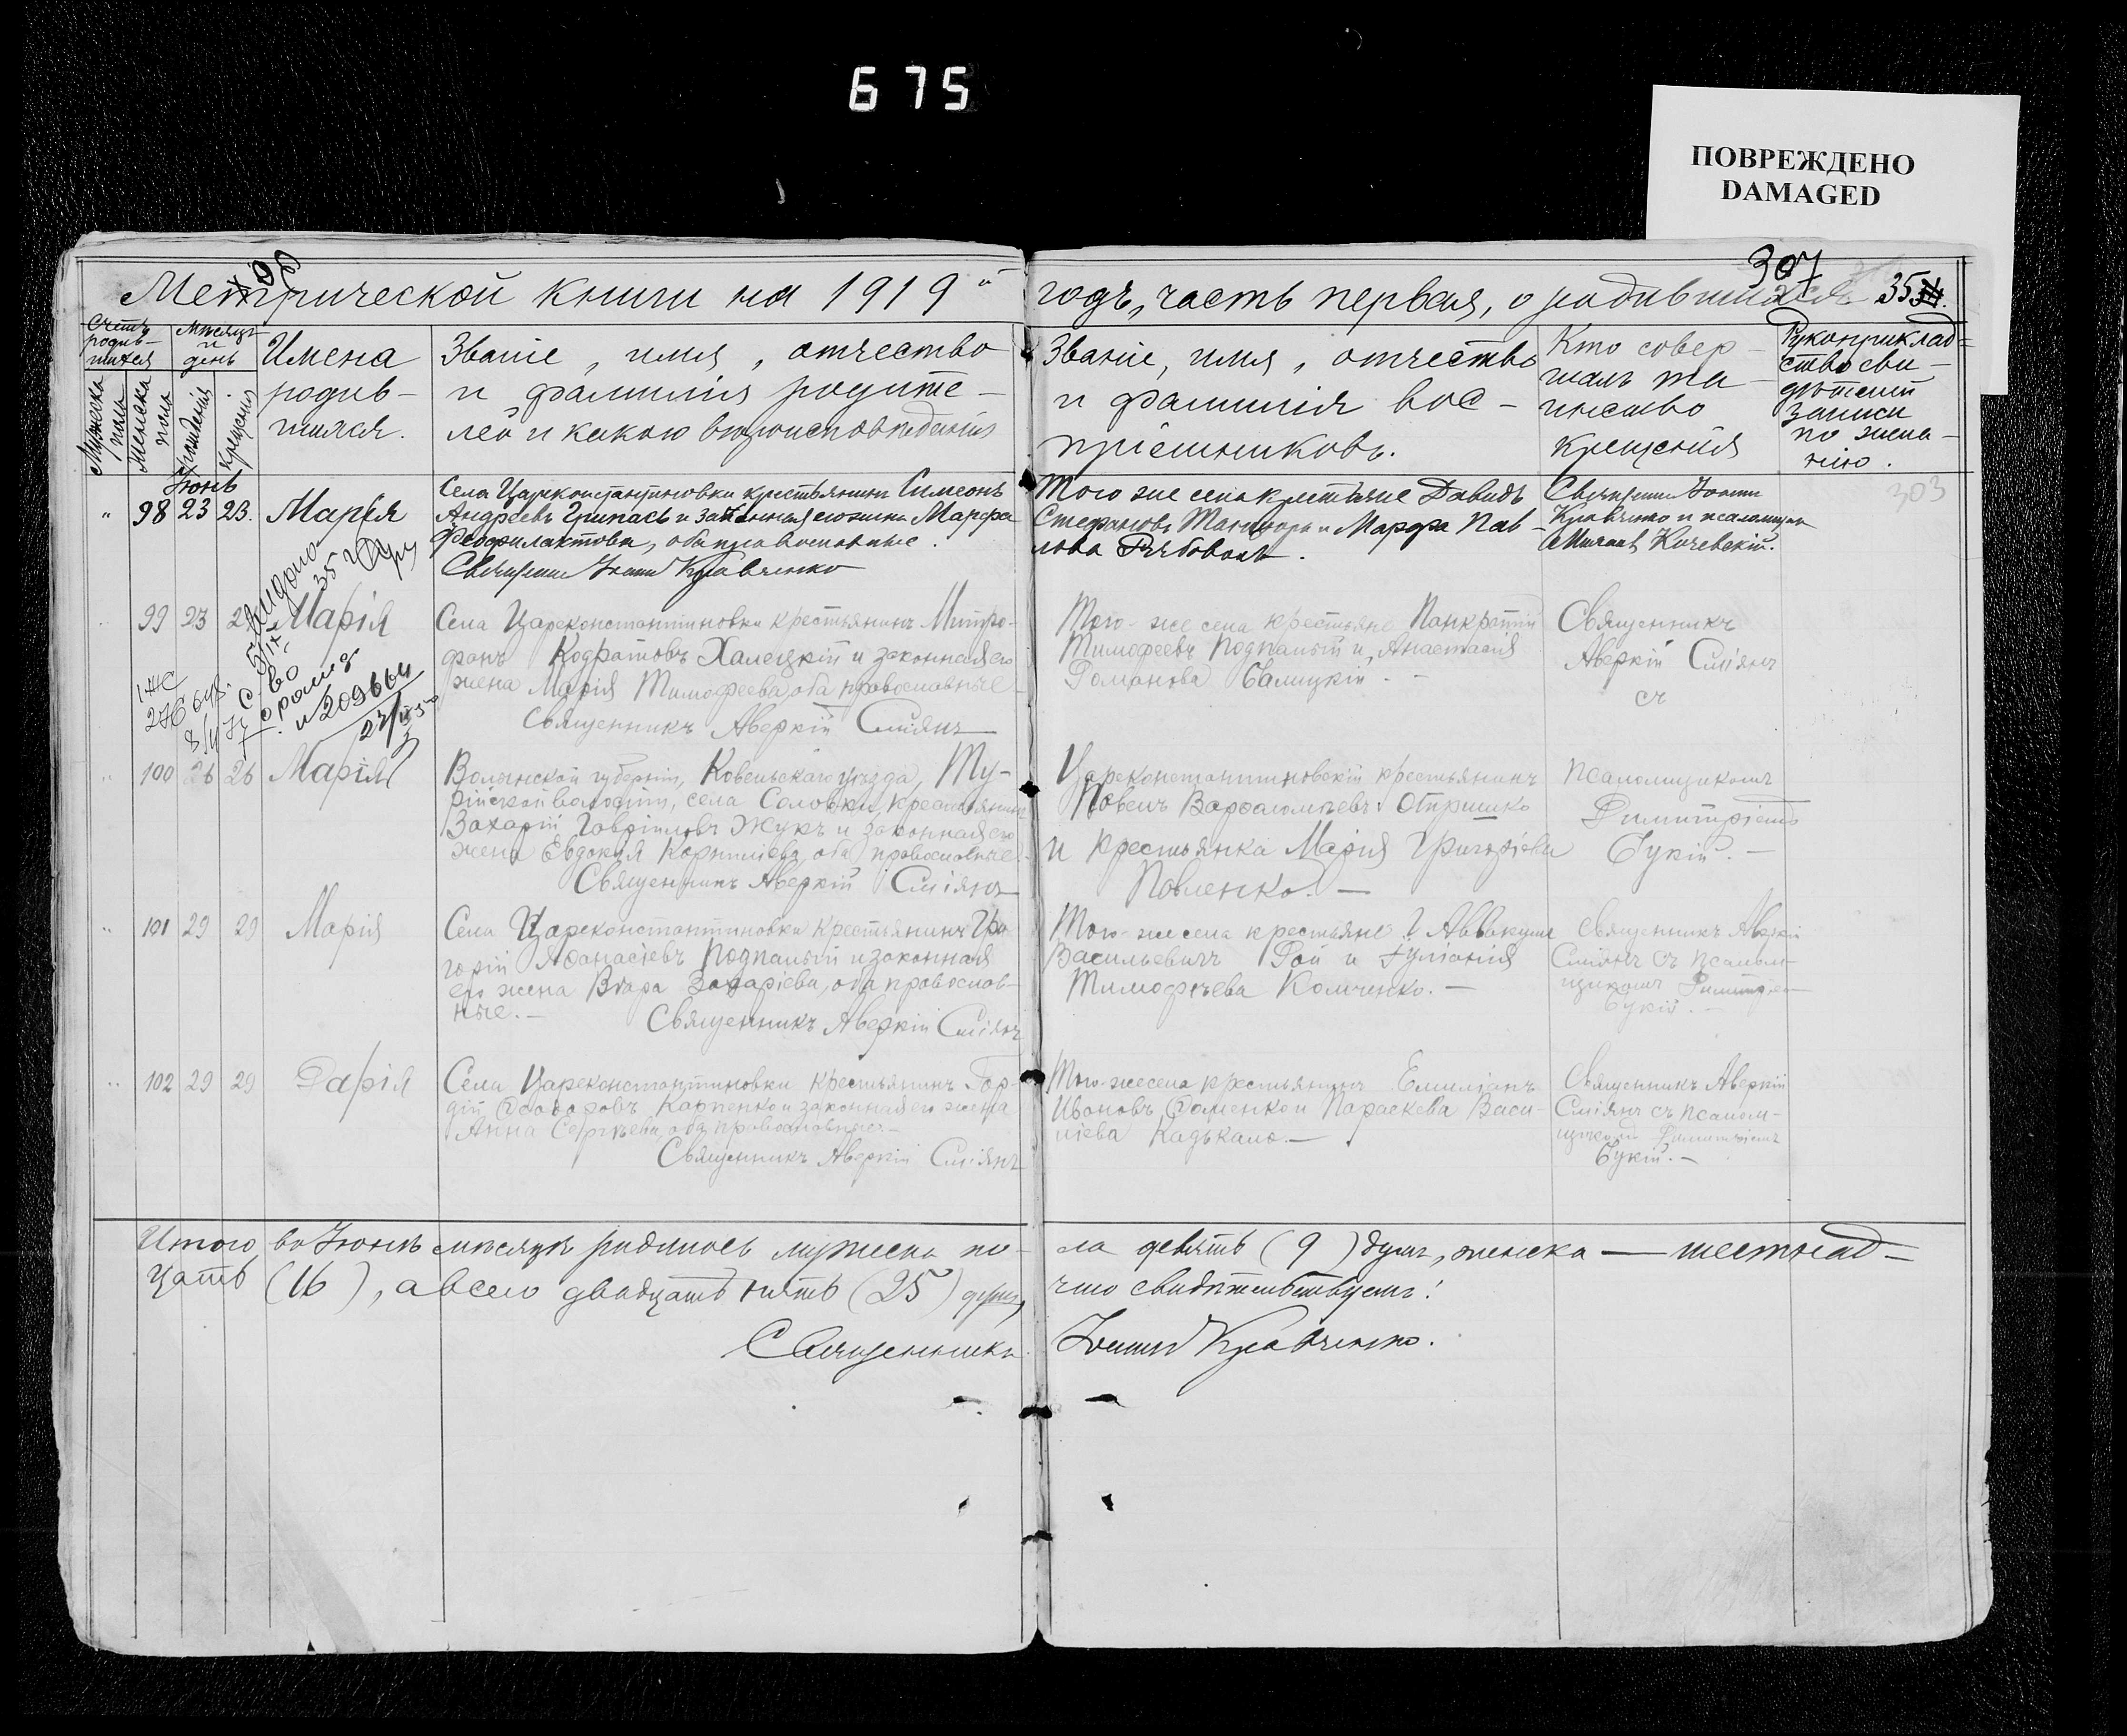 675
ПОВРЕЖДЕНО
DAMAGED
307
Метрической книги на 1919й годъ, часть первая, о родившихся 35
Счетъ родив-шихся
Мѣсяцъ и день
Имена родив-шихся.
Званіе, имя, отчество
и фамилія родите-
лей и какого вѣроисповѣданія
Званіе, имя, отчество
и фамилія вос-
пріемниковъ.
Кто совер-
шалъ та-
инство
крещенія
Рукоприклад-
ство сви-
дѣтелей
записи
по жела-
нію.
Мужеска пола
Женска пола
рожденія
крещенія
Іюнь
" 98 23 23. Марія
Села Цареконстантиновки крестьянинъ Симеонъ
Андреевъ и законная его жена Марфа
Феофилактова, оба православные.
Священникъ Іоаннъ Кравченко
Того же села крестьяне Давидъ
Стефановъ и Марфа Пав-
лова
Священникъ Іоаннъ
Кравченко и псаломщикъ
Кочевскій.
303
209664
99 23 Марія
Села Цареконстантиновки крестьянинъ Митро-
фанъ Кодратовъ Халецкій и законная его
жена Марія Тимофеева, оба православные
Священникъ Аверкій Сміянъ
Того-же села крестьяне Панкратій
Тимофеевъ Подпалый и Анастасія
Романова
Священникъ
Аверкій Сміянъ
съ
" 100 26 26 Марія
Волынской губерніи, Ковельскаго уѣзда, Ту-
рійской волости, села Соловки, крестьянинъ
Захарій Гавріиловъ Жукъ и законная его
жена Евдокія Корниліева, оба православные
Священникъ Аверкій Сміянъ
Цареконстантиновскій крестьянинъ
Павелъ Варфаломѣевъ Отришко
и крестьянка Марія Григоріева
Павленко. —
псаломщикомъ
Димитріемъ
Букій. —
" 101 29 29 Марія
Села Цареконстантиновки крестьянинъ Гри-
горій Афанасіевъ Подпалый и законная
его жена Вѣра Захаріева, оба православ-
ные. —
Священникъ Аверкій Сміянъ
Того-же села крестьяне: Аввакумъ
Васильевичъ Рой и Іуліанія
Тимофѣева Колченко. —
Священникъ Аверкій
Сміянъ съ псалом-
щикомъ Димитріемъ
Букій. —
" 102 29 29 Дарія
Села Цареконстантиновки крестьянинъ Гор-
дій Карпенко и законная его жена
Анна Сергѣева, оба православные. —
Священникъ Аверкій Сміянъ
Того-же села крестьянинъ Емиліанъ
Ивановъ Фоменко и Параскева Васи-
ліева Кадькало. —
Священникъ Аверкій
Сміянъ съ псалом-
щикомъ Димитріемъ
Букій. —
Итого, въ Іюнѣ мѣсяцѣ родилось мужеска по-
ла девять (9) душъ, женска — шестнад-
цать (16), а всего двадцать пять (25) душъ,
что свидѣтельствуемъ:
Священникъ Іоаннъ Кравченко.